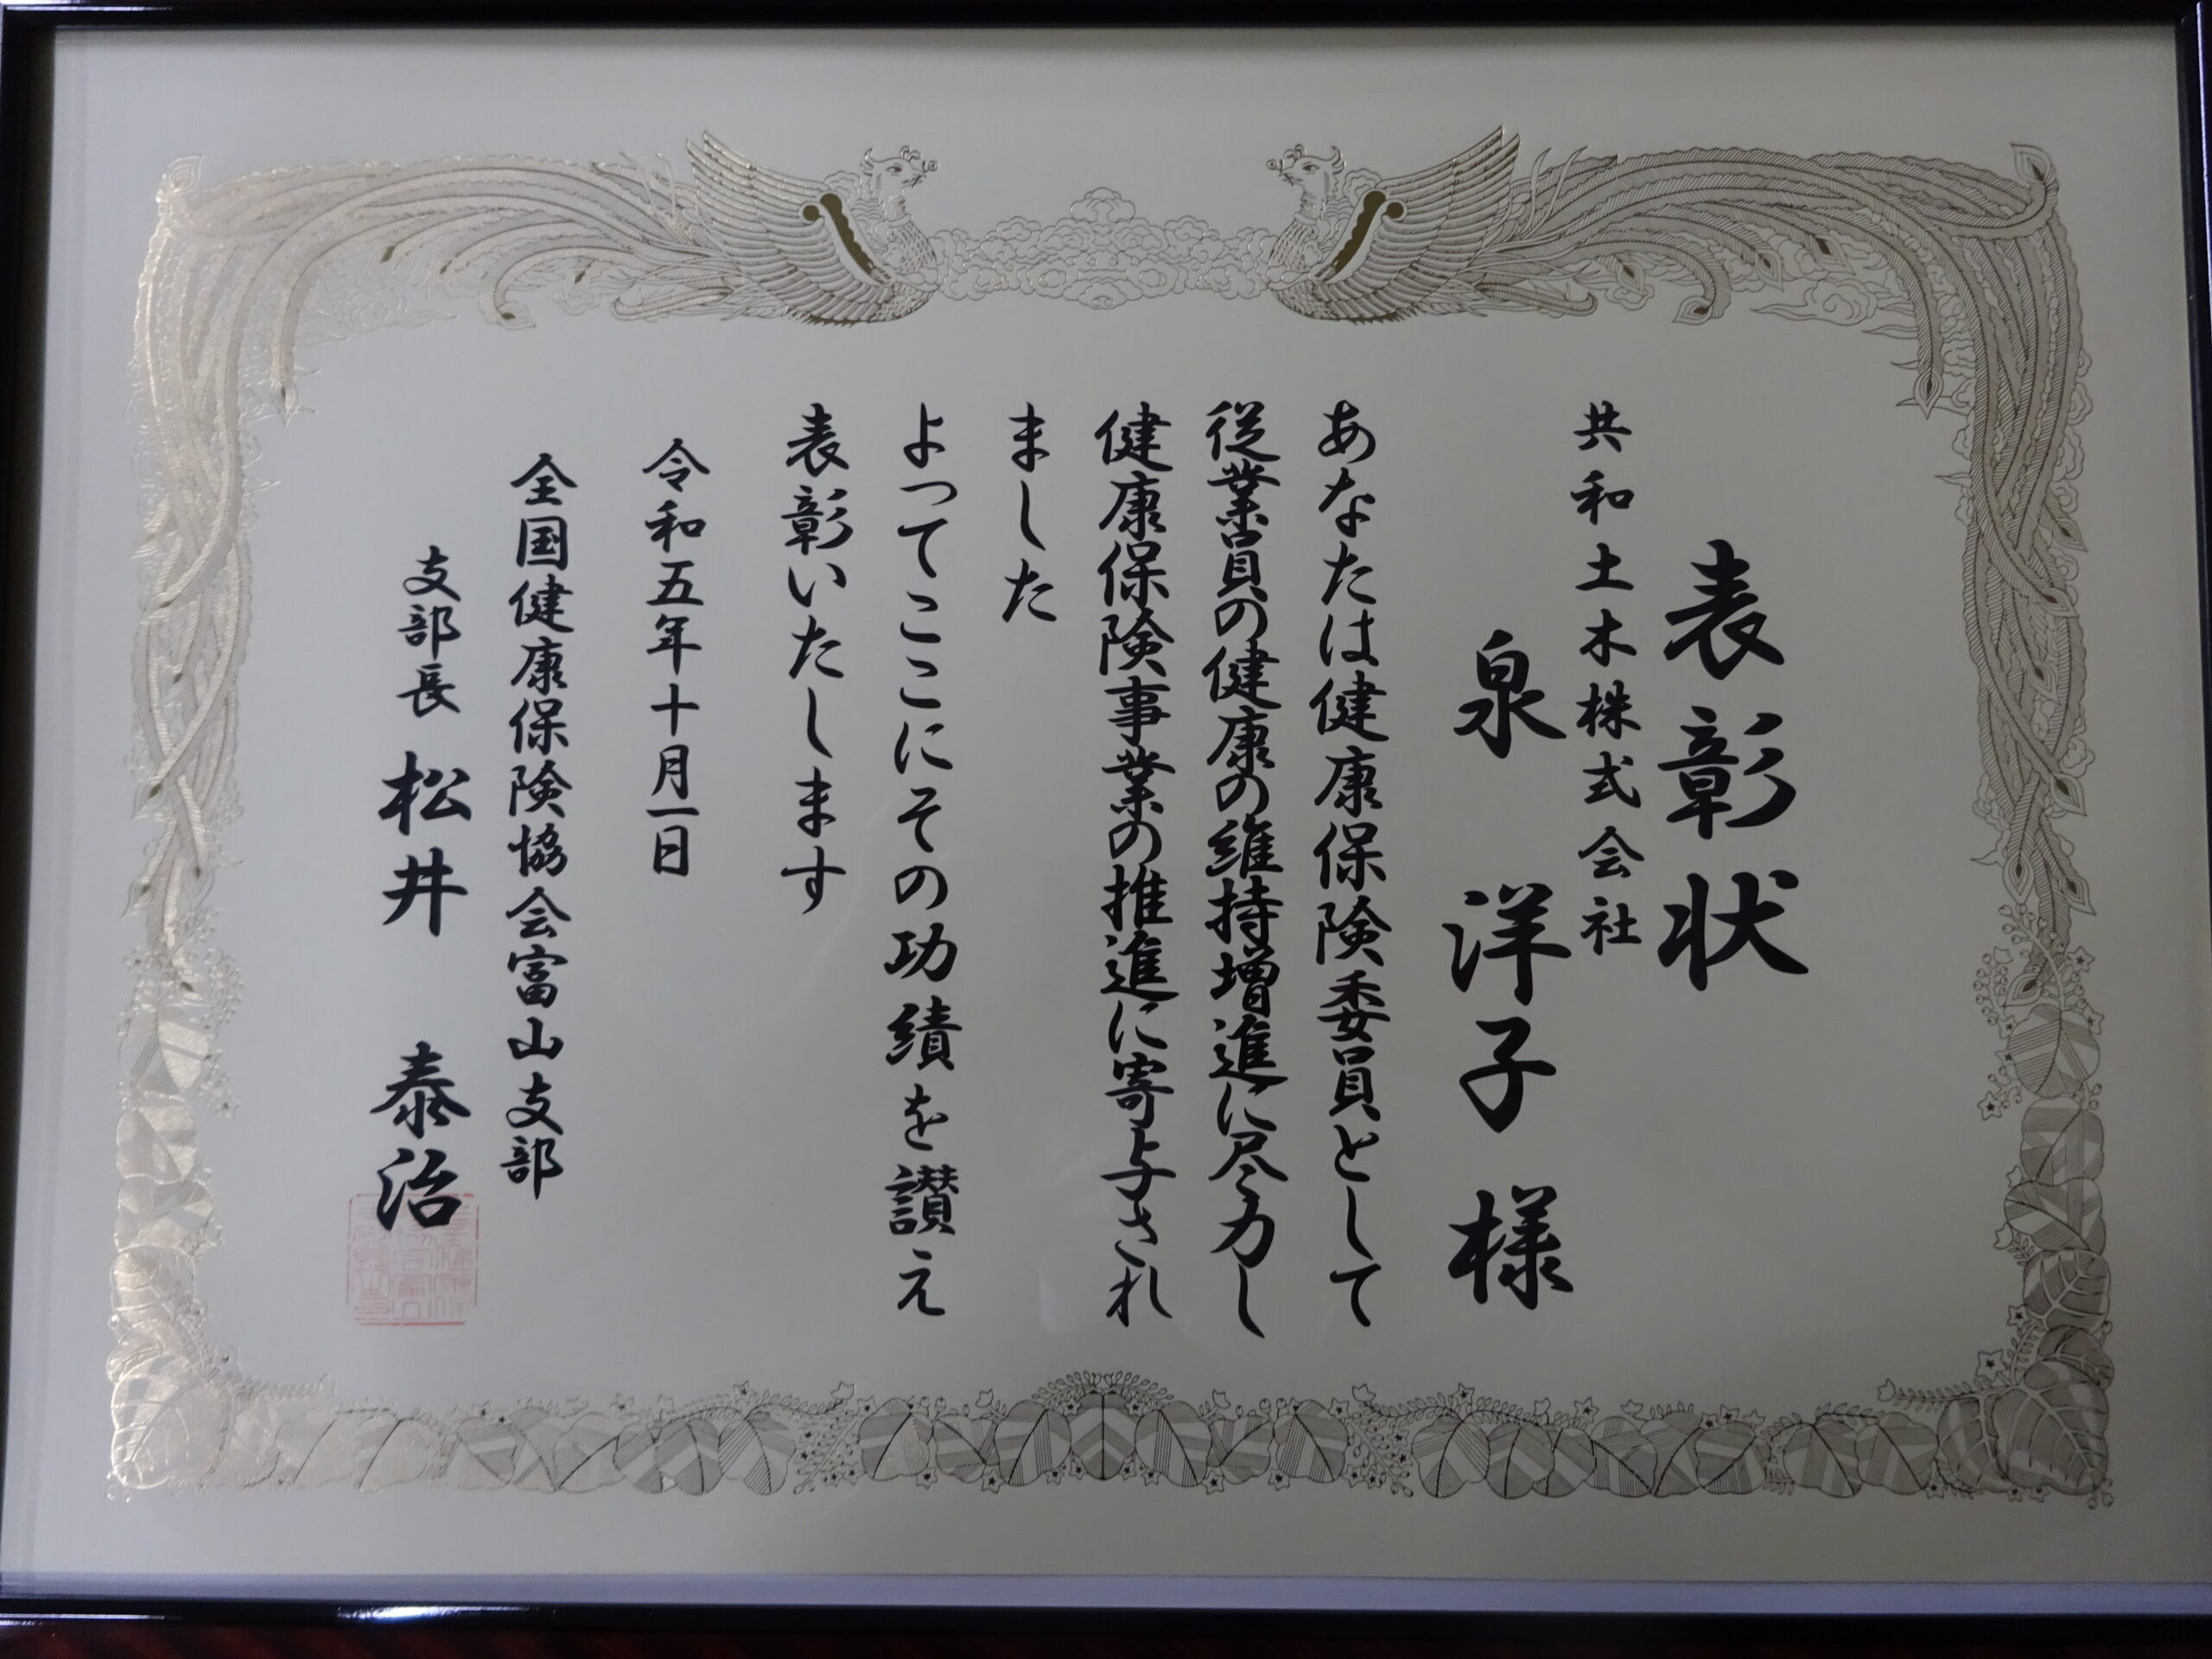 表彰状
共和土木株式会社
泉 洋子 様
あなたは健康保険委員として
従業員の健康の維持増進に尽力し
健康保険事業の推進に寄与され
ました
よってここにその功績を讃え
表彰いたします
令和五年十月一日
全国健康保険協会富山支部
支部長 松井 泰治